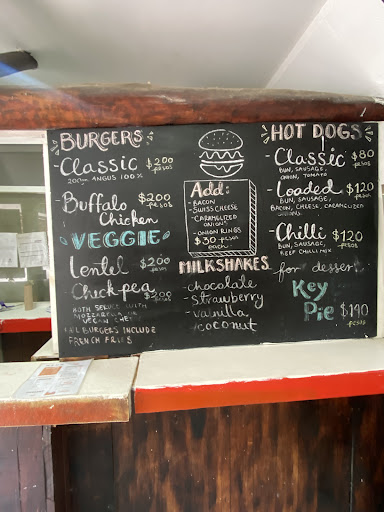 BURGERS
-Classic $200 pesos
200gm ANGUS 100%
-Buffalo $200 pesos
Chicken
VEGGIE
Lentel $200 pesos
Chickpea $200 pesos
BOTH SERVED WITH
MOZZARELLA OR
VEGAN CHEESE
ALL BURGERS INCLUDE
FRENCH FRIES
Add:
-BACON
-SWISS CHEESE
-CARAMELIZED
ONION
-ONION RINGS
$30 PESOS
EACH
MILKSHAKES
-chocolate
-strawberry
-vainilla
-coconut
HOT DOGS
-Classic $80 PESOS
BUN, SAUSAGE,
ONION, TOMATO
-Loaded $120 PESOS
BUN, SAUSAGE,
BACON, CHEESE, CARAMELIZED
ONIONS
-Chilli $120 PESOS
BUN, SAUSAGE,
BEEF CHILLI MIX
for dessert
Key
Pie $140 PESOS